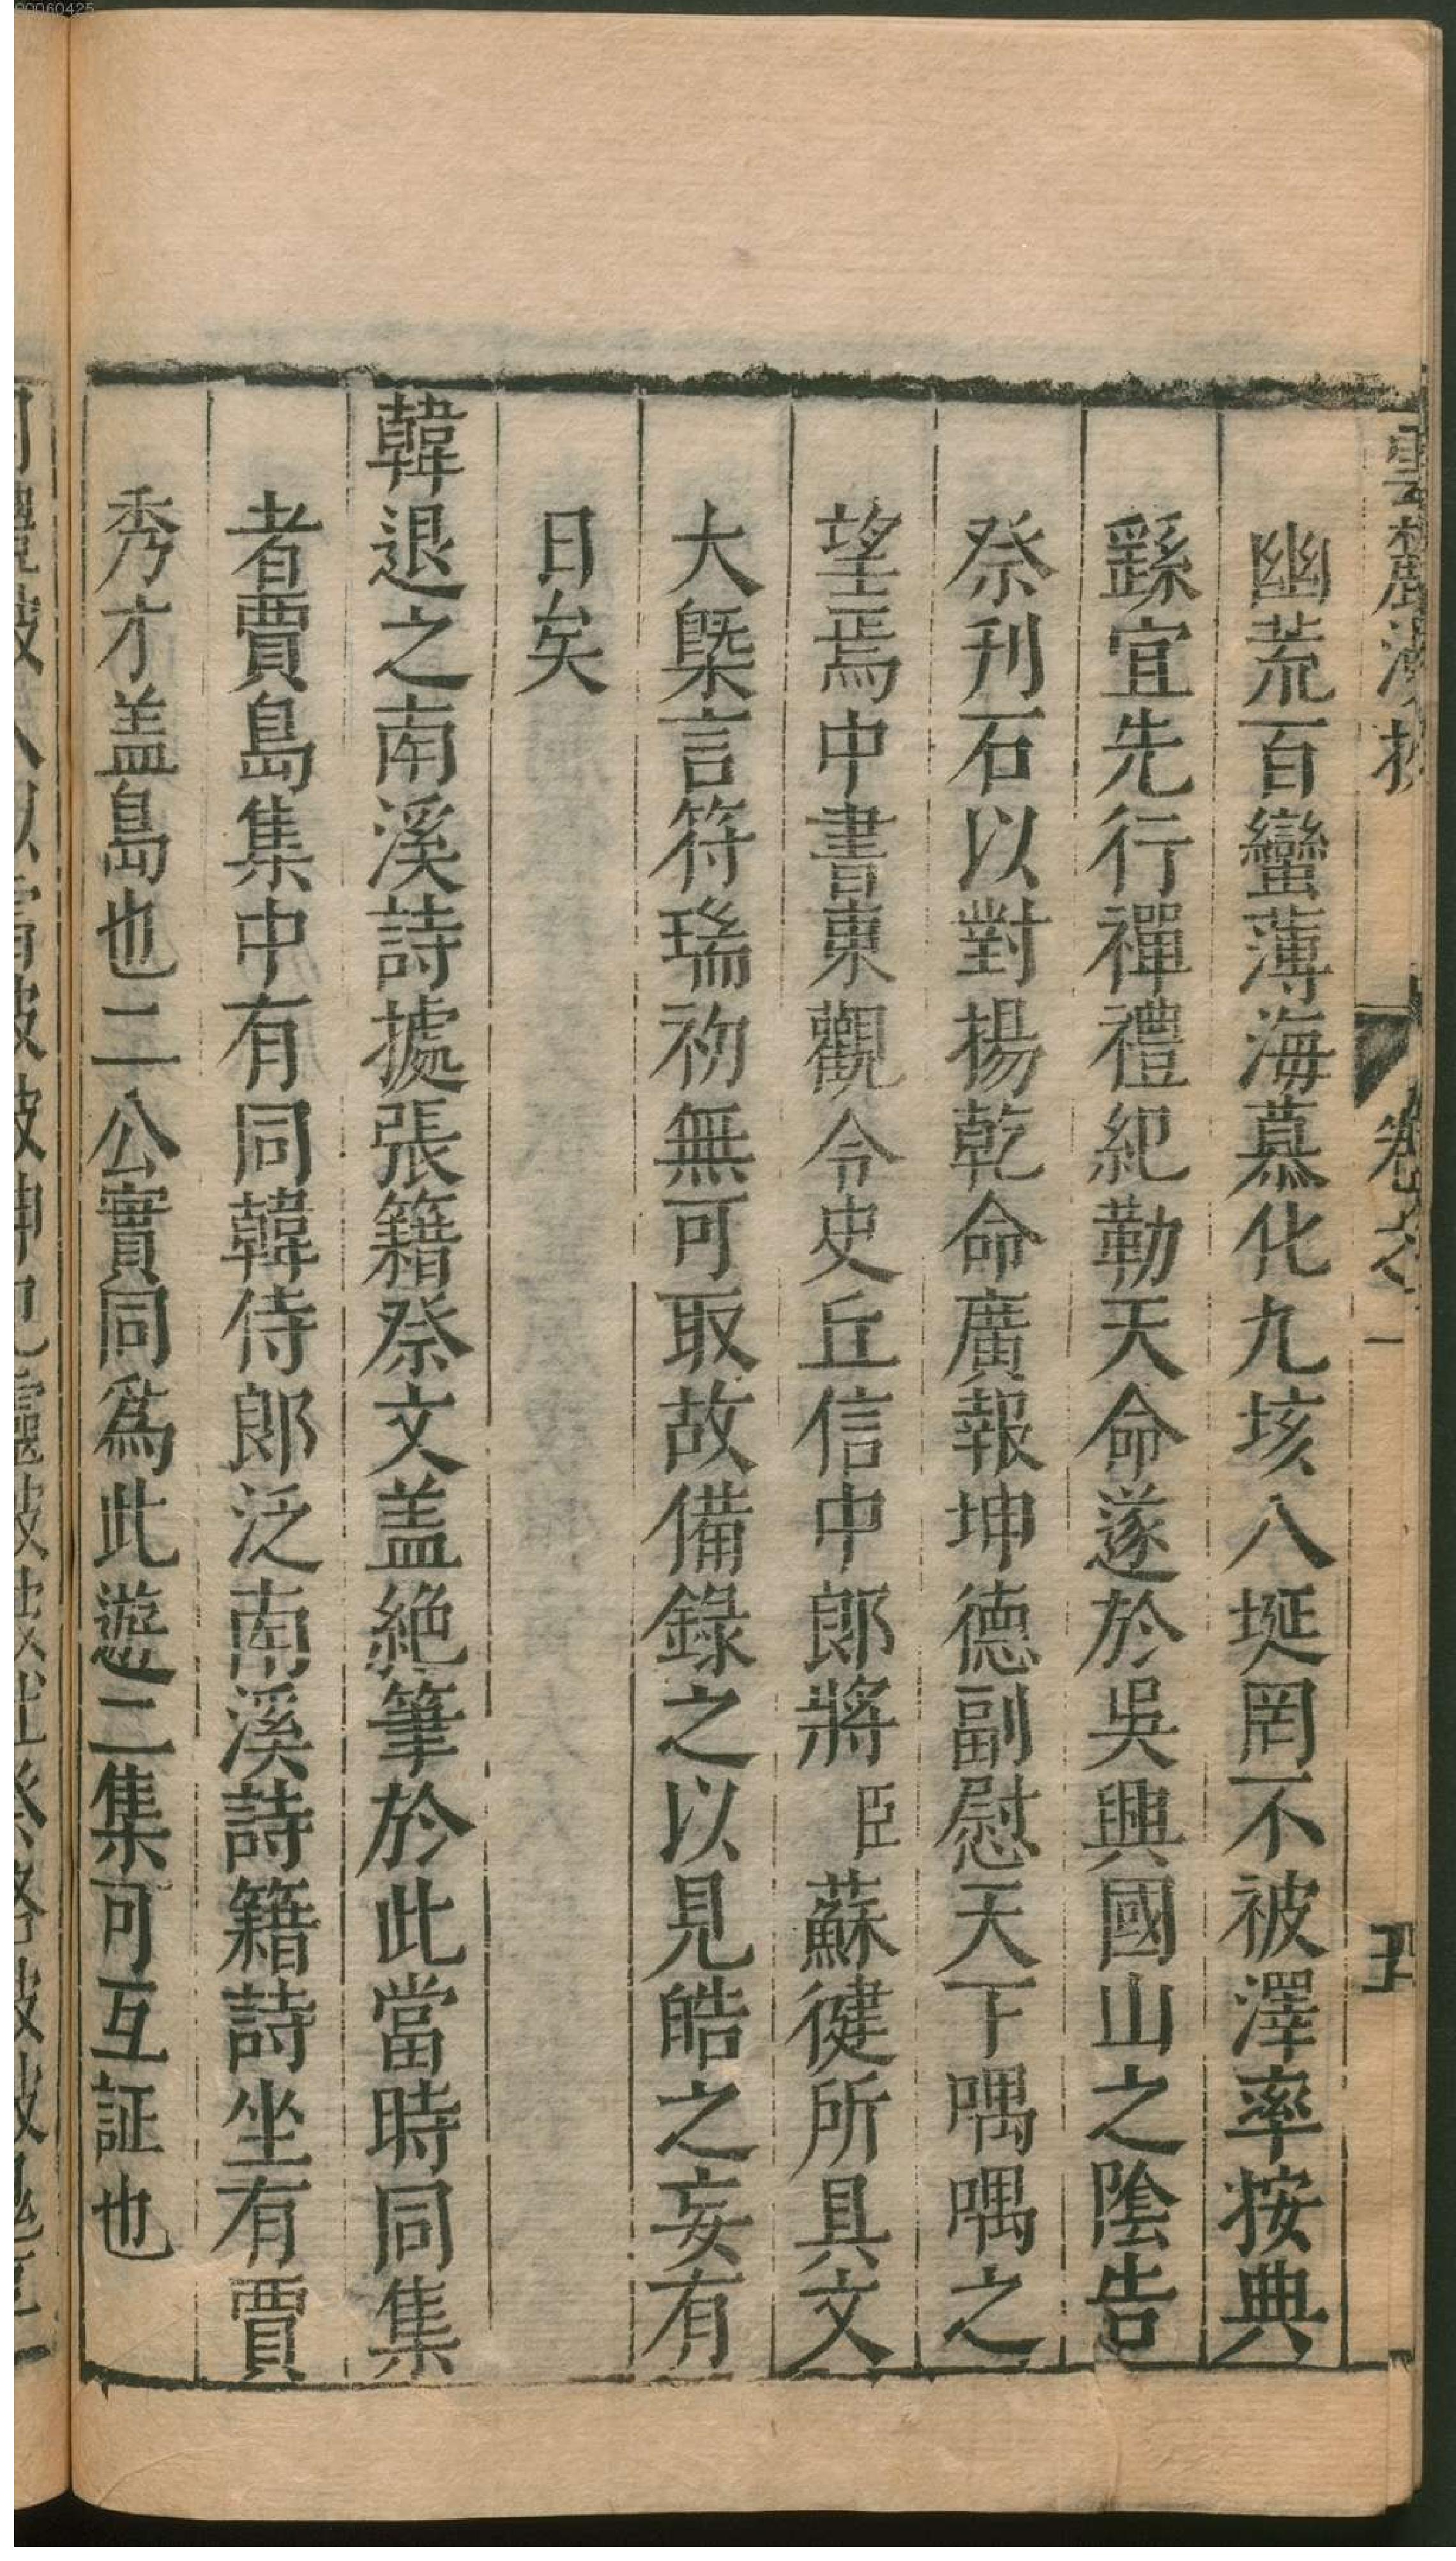 幽荒百蠻薄海慕化九垓八埏罔不被澤率按典
繇宜先行禪禮紀勒天命遂於吳興國山之陰告
祭刋石以對揚乾命廣報坤德副慰天下喁喁之
望焉中書東觀令史丘信中郎將臣蘇健所具文
大槩言符瑞初無可取故備錄之以見皓之妄有
日矣
韓退之南溪詩㨿張籍祭文盖絕筆於此當時同集
者賈島集中有同韓侍郎泛南溪詩籍詩坐有賈
秀才盖島也二公實同爲此遊二集可互証也
雲麓漫抄 卷之一 五
80060425